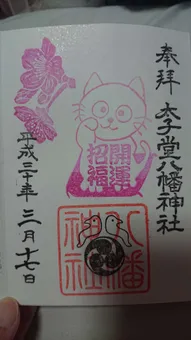 奉拝 太子堂八幡神社
開運
招福
八幡
神社
平成三十年三月十七日